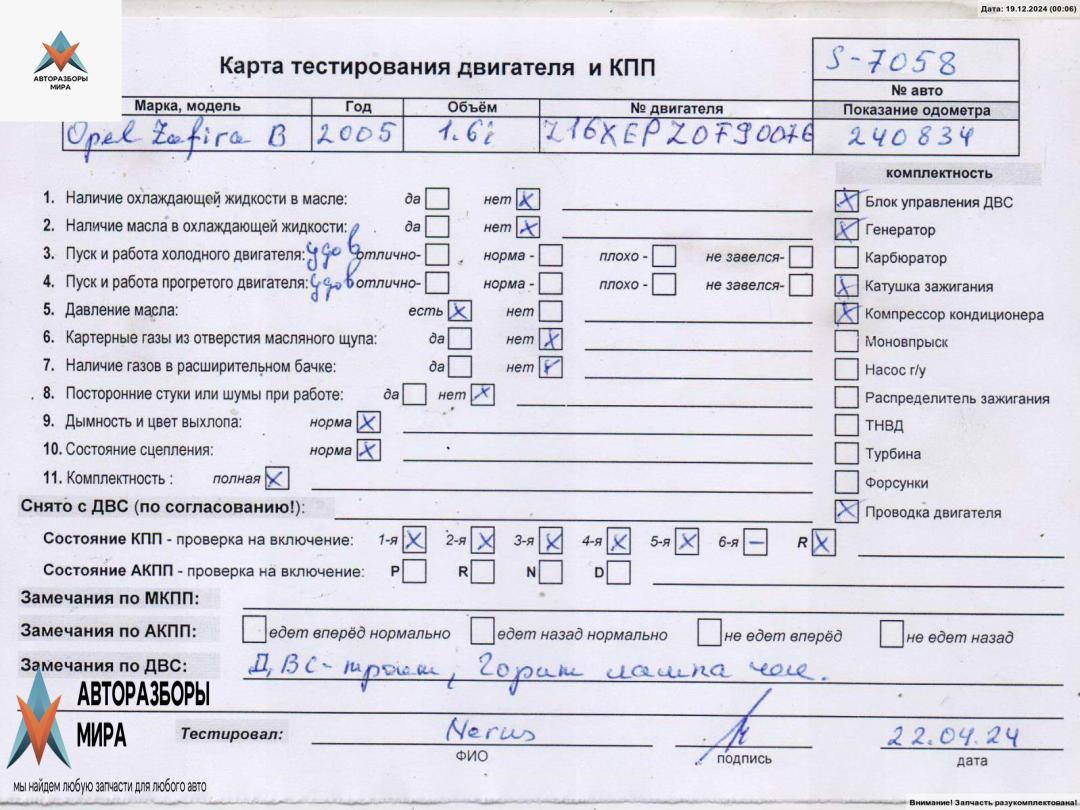 Дата: 19.12.2024 (00:06)
АВТОРАЗБОРЫ
МИРА
Карта тестирования двигателя и КПП
S-7058
№ авто
Марка, модель Год Объём № двигателя Показание одометра
Opel Zafira B 2005 1.6i Z16XEP 20F90076 240834
комплектность
1. Наличие охлаждающей жидкости в масле: да нет x Блок управления ДВС
2. Наличие масла в охлаждающей жидкости: да нет x Генератор
3. Пуск и работа холодного двигателя: удов отлично- норма - плохо - не завелся- Карбюратор
4. Пуск и работа прогретого двигателя: удов отлично- норма - плохо - не завелся- Катушка зажигания
5. Давление масла: есть x нет Компрессор кондиционера
6. Картерные газы из отверстия масляного щупа: да нет x Моновпрыск
7. Наличие газов в расширительном бачке: да нет Насос г/у
8. Посторонние стуки или шумы при работе: да нет x Распределитель зажигания
9. Дымность и цвет выхлопа: норма x ТНВД
10. Состояние сцепления: норма x Турбина
11. Комплектность : полная x Форсунки
Снято с ДВС (по согласованию!): Проводка двигателя
Состояние КПП - проверка на включение: 1-я x 2-я x 3-я x 4-я x 5-я x 6-я – R x
Состояние АКПП - проверка на включение: P R N D
Замечания по МКПП:
Замечания по АКПП: едет вперёд нормально едет назад нормально не едет вперёд не едет назад
Замечания по ДВС: ДВС-троит, Горит лампа чек.
АВТОРАЗБОРЫ
МИРА
мы найдем любую запчасти для любого авто
Тестировал: Nerus 22.04.24
ФИО подпись дата
Внимание! Запчасть разукомплектована!